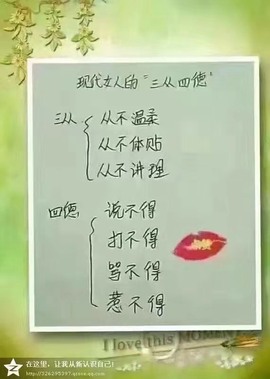 现代女人的“三从四德”
三从
从不温柔
从不体贴
从不讲理
四德
说不得
打不得
骂不得
惹不得
I love this MOMENT
在这里，让我从新认识自己！